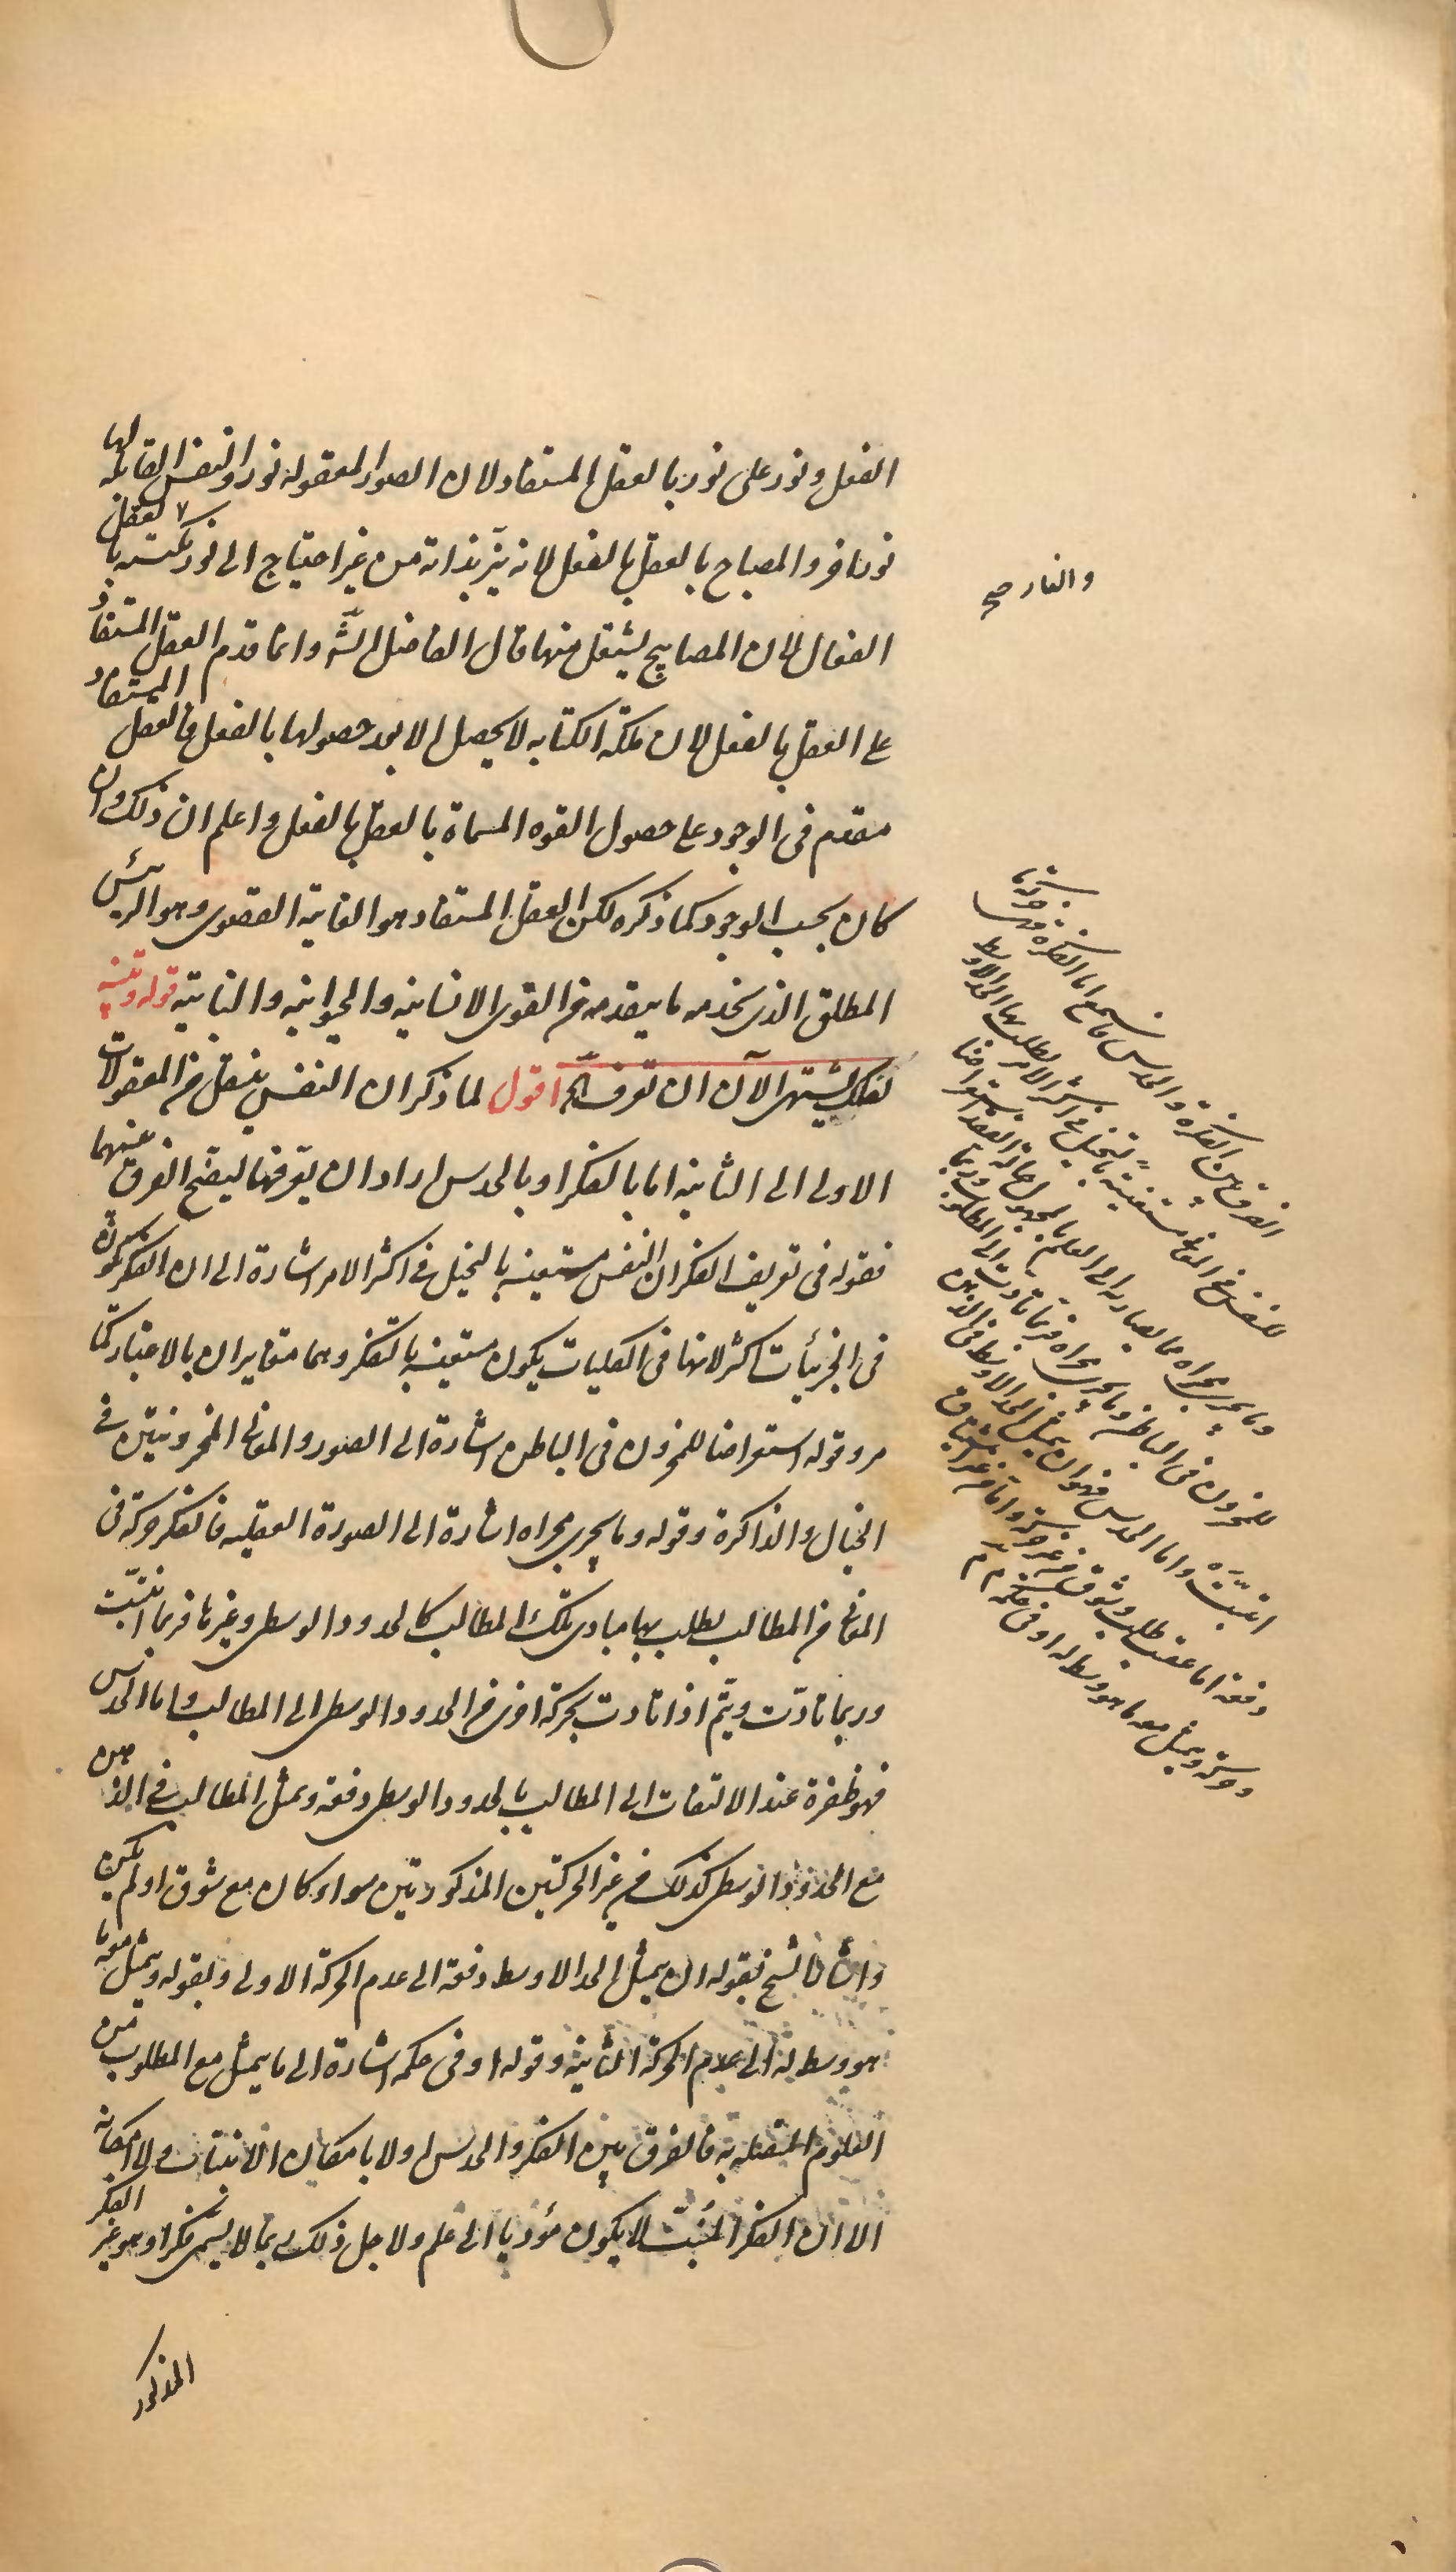 الفعل ونور على نور بالعقل المستفاد لان الصور المعقوله نور والنفس القابله لها
نور اخر والمصباح بالعقل بالفعل لانه ينير بذاته من غير احتياج الى نور يكتسبه بالعقل
الفعال لان المصابيح يشتعل منها قال الفاضل الشّ وانما قدم العقل المستفاد
على العقل بالفعل لان ملكة الكتابه لا يحصل الا بعد حصولها بالفعل فالعقل المستفاد
متقدم فى الوجود على حصول القوه المسماة بالعقل بالفعل واعلم ان ذلك وان
كان بحسب الوجود كما ذكره لكن العقل المستفاد هو الغاية القصوى وهو الرئيس
المطلق الذى يخدمه ما يتقدمه من القوى الانسانيه والحيوانيه والنباتيه قوله وتنبيه
لعلك تشتهى الآن ان تعرف الخ اقول لما ذكر ان النفس ينتقل من المعقولات
الاولى الى الثانيه اما بالفكر او بالحدس اراد ان يعرفهما ليتضح الفرق بينهما
فقوله فى تعريف الفكر ان النفس مستعينه بالتخيل فى اكثر الامر اشارة الى ان الفكر يكون
فى الجزئيات اكثر لانها فى الكليات يكون مستعينه بالتفكر وهما متغايران بالاعتبار كما
مر وقوله استعراضا للمخزون فى الباطن اشارة الى الصور والمعانى المخزونتين فى
الخيال والذاكرة وقوله وما يجرى مجراه اشارة الى الصورة العقليه فالفكر حركة فى
المعانى من المطالب يطلب بها مبادى تلك المطالب كالحدود الوسطى وغيرها فربما انبتّت
وربما تادّت ويتم اذا تادت بحركة اخرى من الحدود الوسطى الى المطالب واما الحدس
فهو ظفرة عند الالتفات الى المطالب بالحدود الوسطى دفعة وتمثل المطالب فى الذهن
مع الحدود الوسطى كذلك من غير الحركتين المذكورتين سواء كان مع شوق او لم يكن
واشار الشيخ بقوله ان يتمثل الحد الاوسط دفعة الى عدم الحركة الاولى وبقوله ويتمثل معه ما
هو وسط له الى عدم الحركة الثانيه وقوله او فى حكمه اشارة الى ما يتمثل مع المطلوب من
العلوم المتصله به فالفرق بين الفكر والحدس اولا بامكان الانبتات ولا امكانه
الا ان الفكر المنبتّ لا يكون مؤديا الى علم ولاجل ذلك ربما لا يسمى فكرا وهو غير الفكر
المذكور
والنار صح
الفرق بين الفكرة والحدس فاسمع اما الفكرة فهى حركة ما
للنفس فى المعانى مستعينة بالتخيل فى اكثر الامر يطلب بها الحد الاوسط
وما يجرى مجراه مما يصار به الى العلم بالمجهول حالة الفقد استعراضا
للمخزون فى الباطن وما يجرى مجراه فربما تادت الى المطلوب وربما
انبتّت واما الحدس فهو ان يتمثل الحد الاوسط فى الذهن
دفعة اما عقيب طلب وشوق من غير حركة واما من غير اشتياق
وحركة ويتمثل معه ما هو وسط له او فى حكمه